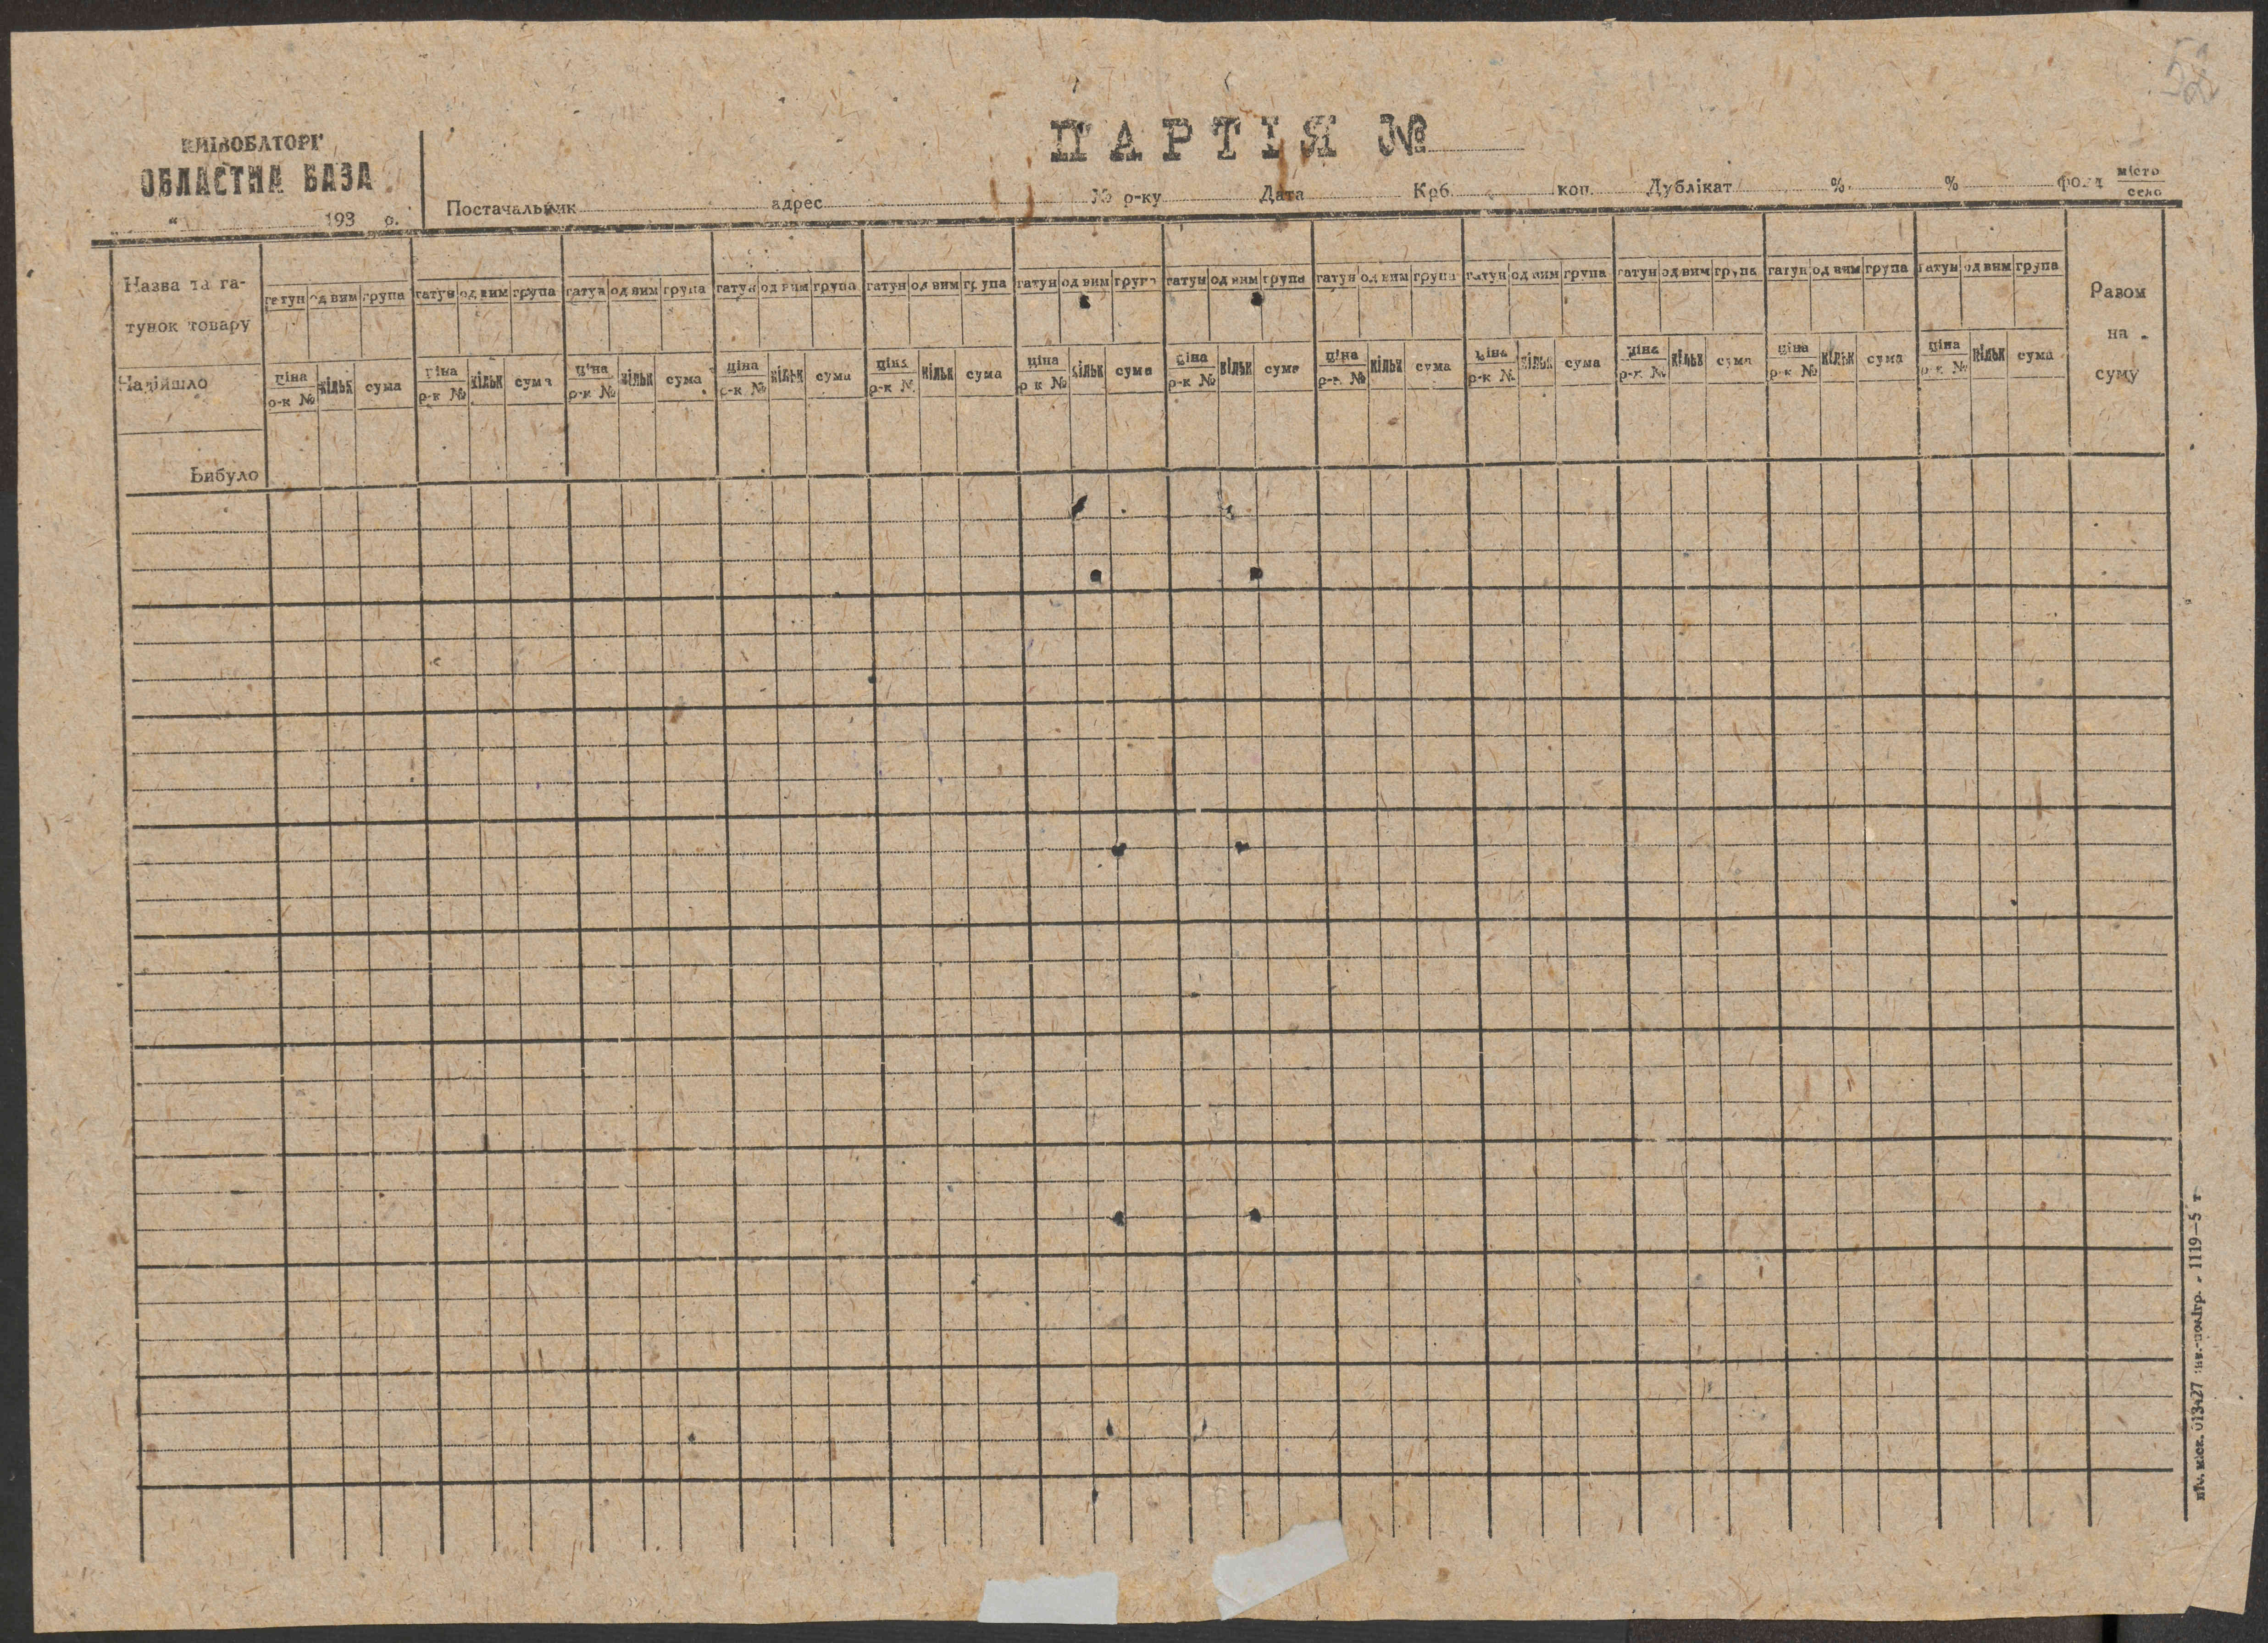 КИЇВОБЛТОРГ
ОБЛАСТНА БАЗА
“ 193 р.
ПАРТІЯ №
Постачальник адрес № р-ку Дата Крб. коп. Дублікат % % фонд місто село
Назва та га-
тунок товару
Надійшло
Вибуло
гатун од вим група гатун од вим група гатун од вим група гатун од вим група гатун од вим група гатун од вим група гатун од вим група гатун од вим група гатун од вим група гатун од вим група гатун од вим група гатун од вим група
ціна р-к № кільк сума ціна р-к № кільк сума ціна р-к № кільк сума ціна р-к № кільк сума ціна р-к № кільк сума ціна р-к № кільк сума ціна р-к № кільк сума ціна р-к № кільк сума ціна р-к № кільк сума ціна р-к № кільк сума ціна р-к № кільк сума ціна р-к № кільк сума
Разом
на
суму
1119—5 т